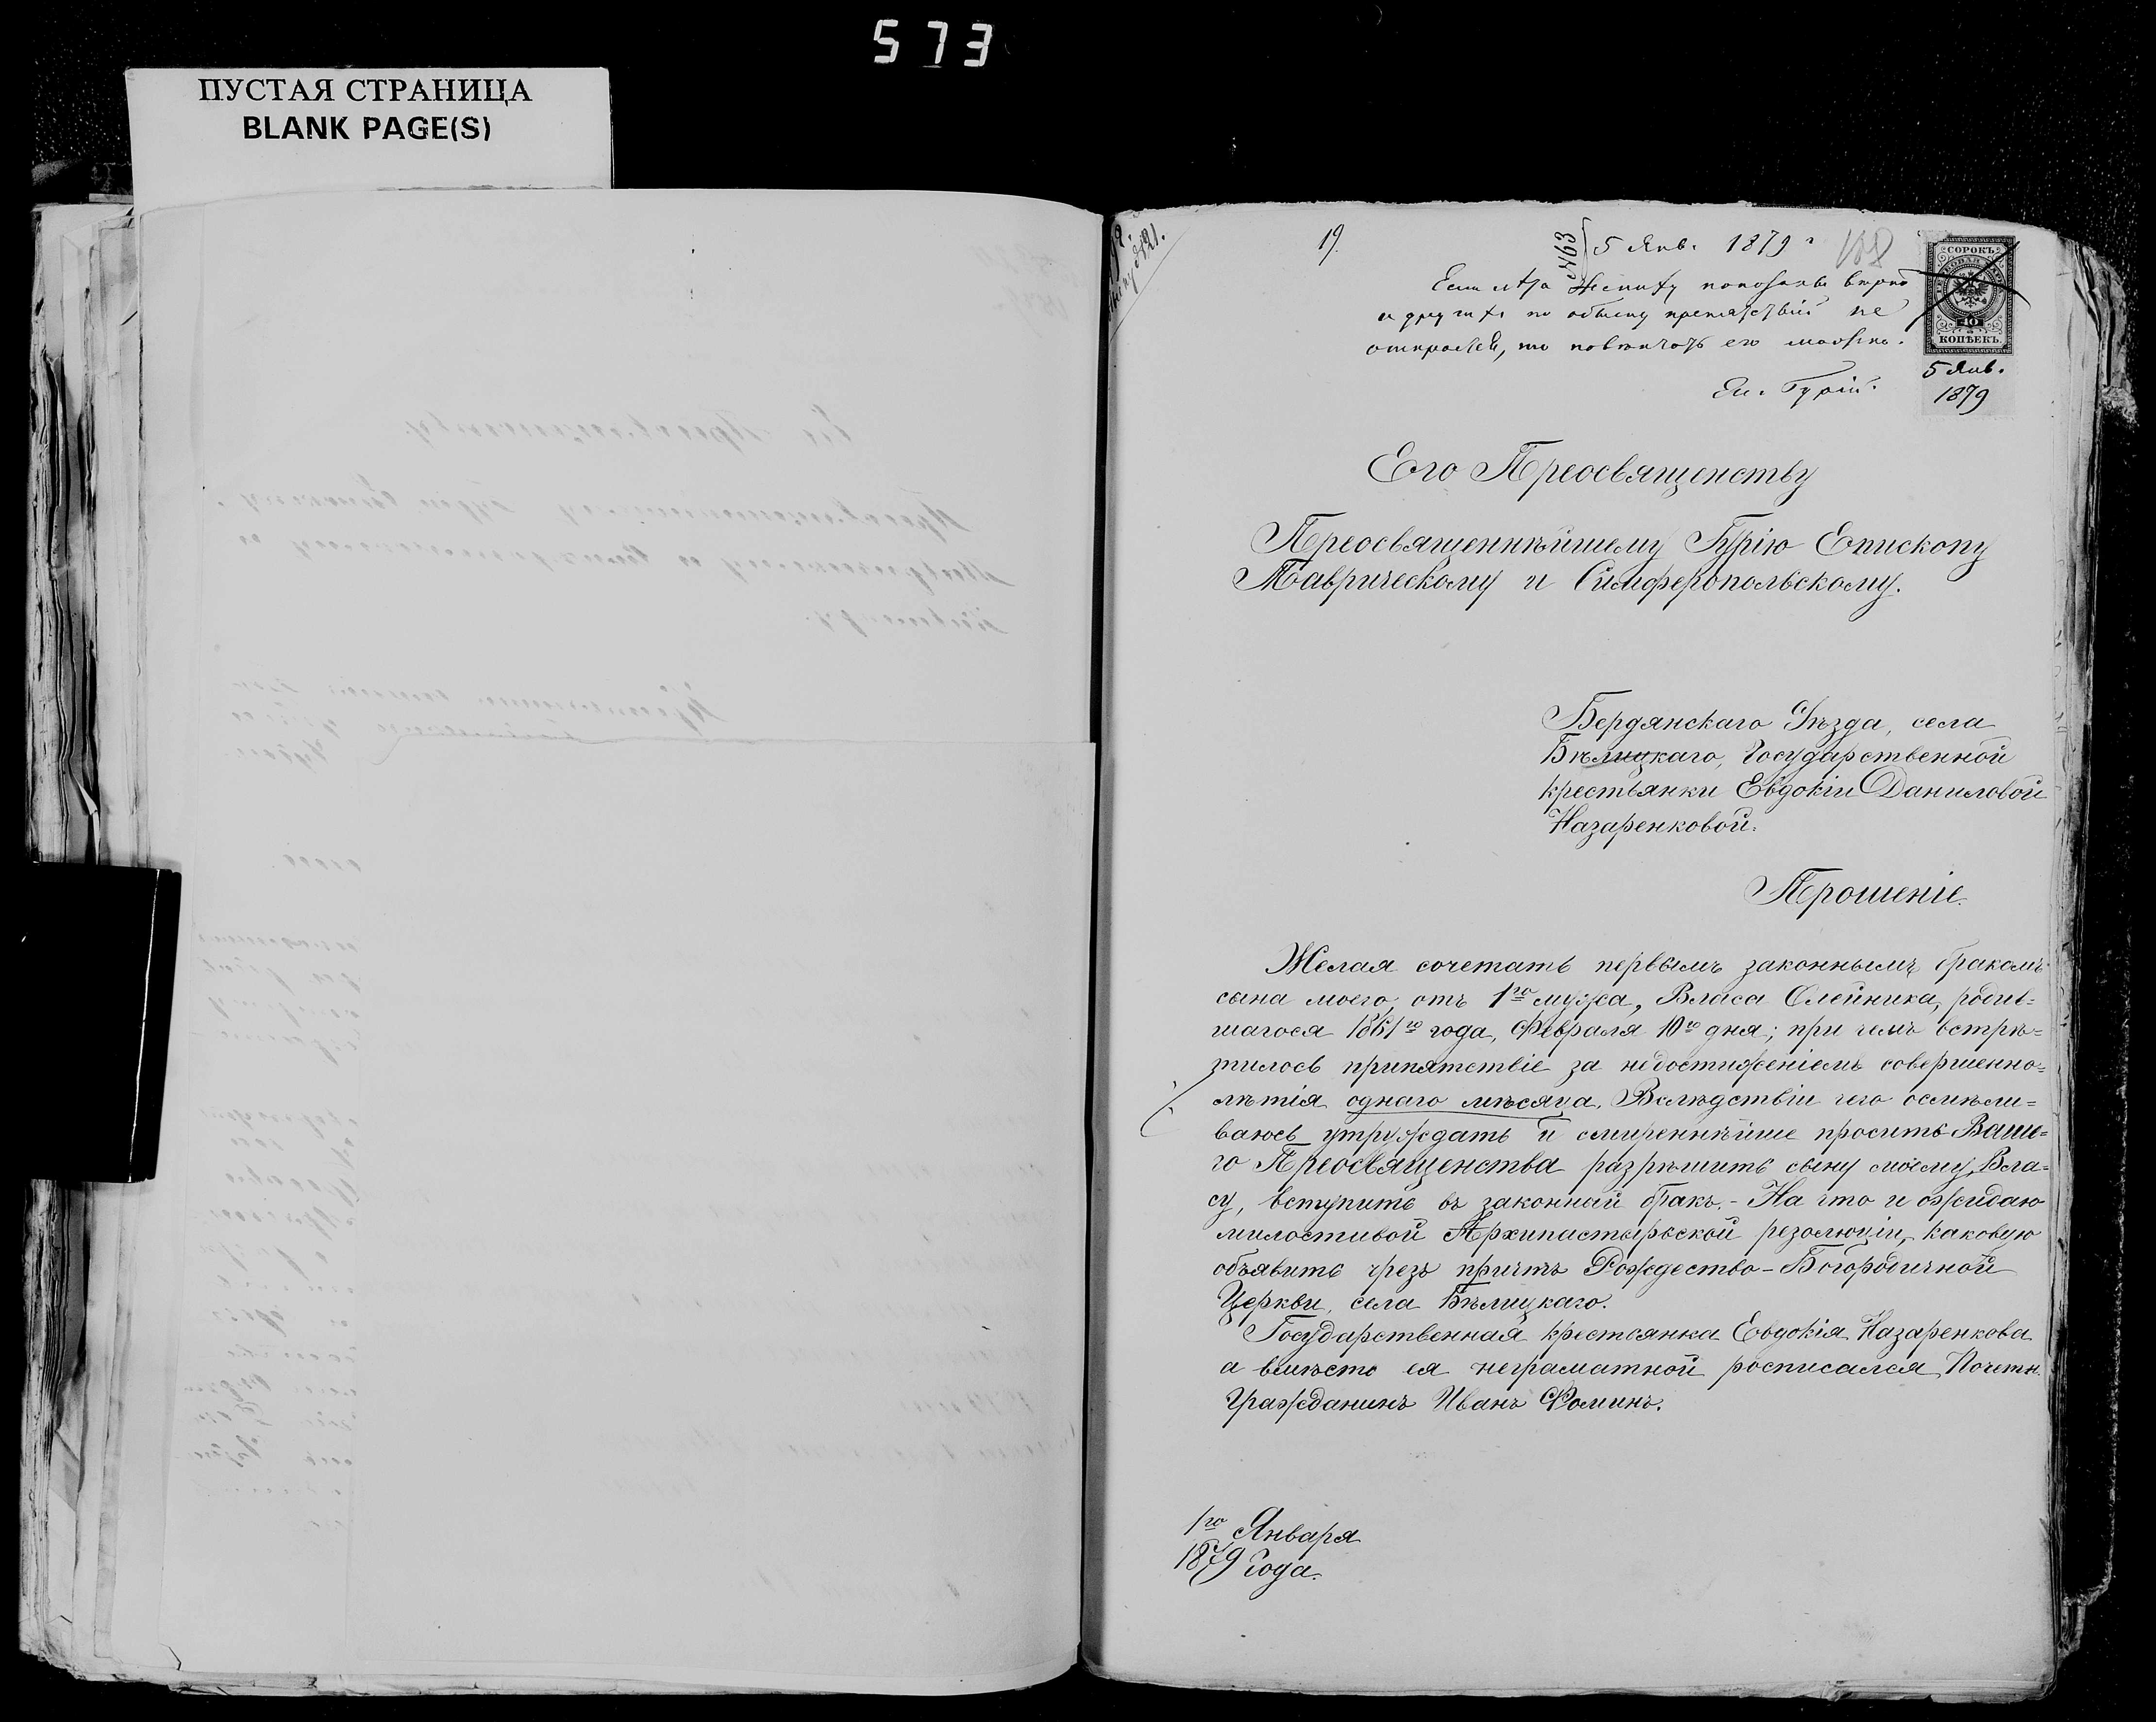 573
ПУСТАЯ СТРАНИЦА
BLANK PAGE(S)
19.
№463
5 Янв. 1879 г
188
Если лѣта жениху показаны вѣрно
и другихъ по обыску препятствій не
откроется, то повѣнчать его можно.
Еп. Гурій.
СОРОКЪ
40
КОПѢЕКЪ.
5 Янв.
1879
Его Преосвященству
Преосвященнѣйшему Гурію Епископу
Таврическому и Симферопольскому.
Бердянскаго Уѣзда, села
Бѣлицкаго, Государственной
крестьянки Евдокіи Даниловой
Назаренковой.
Прошеніе.
Желая сочетать первымъ законнымъ бракомъ
сына моего, отъ 1го мужа, Власа Олейника, родив=
шагося 1861го года, Февраля 10го дня; при чемъ встрѣ=
тилось припятствіе за недостиженіемъ совершенно=
лѣтія однаго мѣсяца. Вслѣдствіи чего осмѣли=
ваюсь утруждать и смиреннѣйше просить Ваше=
го Преосвященства разрѣшить сыну моему, Вла=
су, вступить въ законный бракъ. - На что и ожидаю
милостивой Архипастырьской резолюціи, каковую
объявить чрезъ причтъ Рождество-Богородичной
Церкви, села Бѣлицкаго.
Государственная крестьянка Евдокія Назаренкова
а вмѣсто ея неграматной росписался Почетн.
Гражданинъ Иванъ Фоминъ.
1го Января
1879 года.